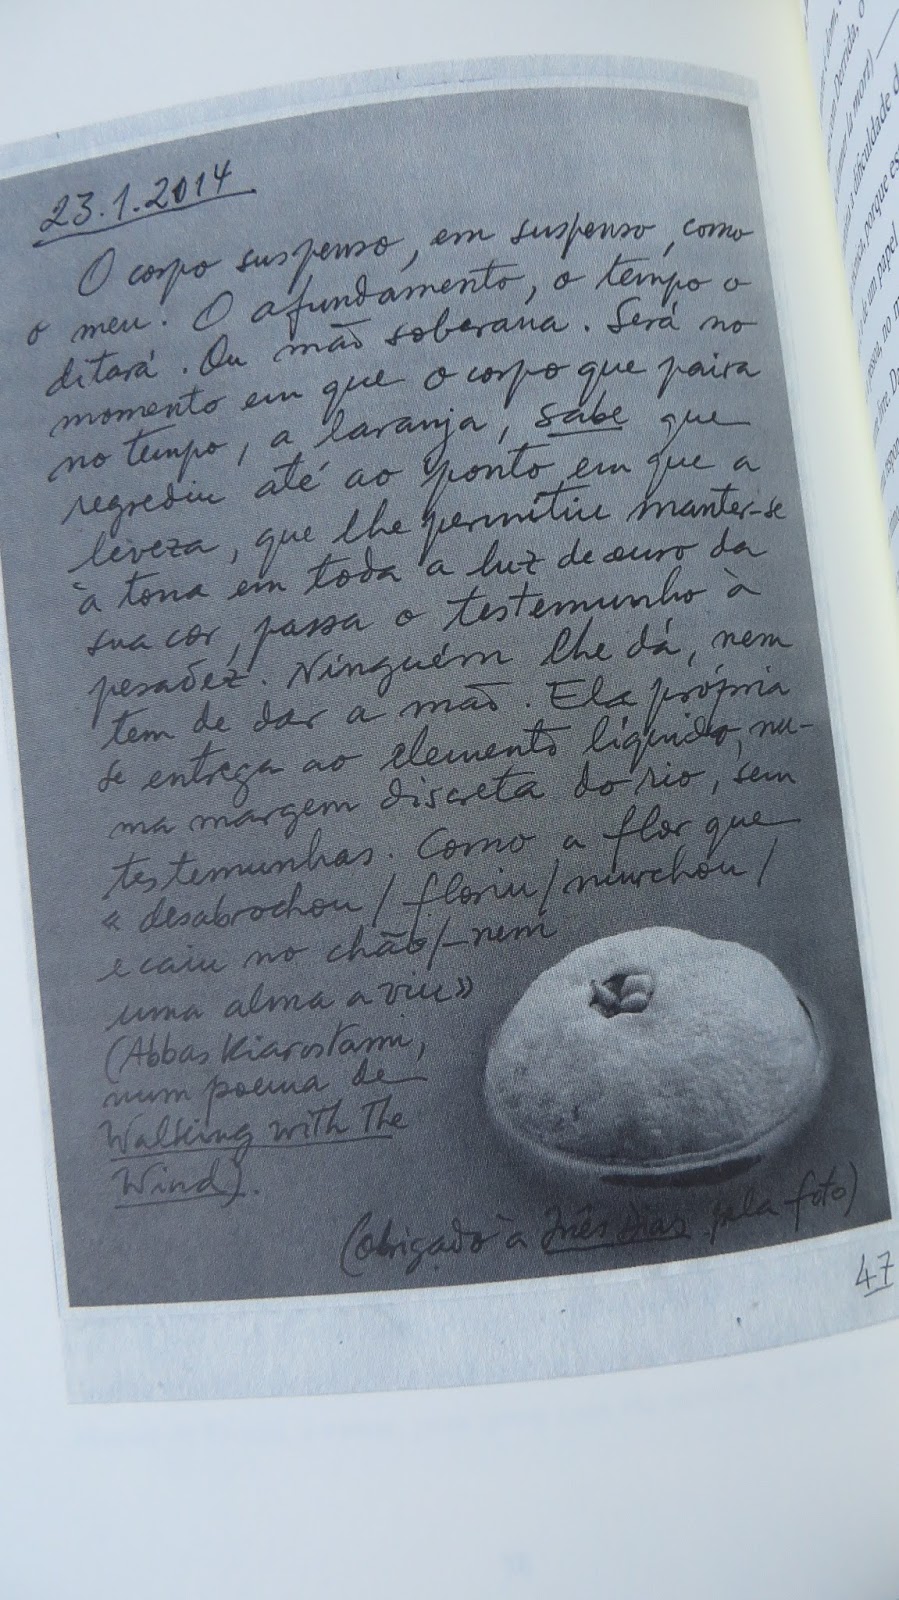 23.1.2014
O corpo suspenso, em suspenso, como
o meu. O afundamento, o tempo o
ditará. Ou mão soberana. Será no
momento em que o corpo que paira
no tempo, a laranja, sabe que
regrediu até ao ponto em que a
leveza, que lhe permitiu manter-se
à tona em toda a luz de ouro da
sua cor, passa o testemunho à
pesadez. Ninguém lhe dá, nem
tem de dar a mão. Ela própria
se entrega ao elemento líquido, nu-
ma margem discreta do rio, sem
testemunhas. Como a flor que
« desabrochou / floriu / murchou /
e caiu no chão / – nem
uma alma a viu »
(Abbas Kiarostami,
num poema de
Walking with the
Wind).
(obrigado à Inês Dias pela foto)
47
Derrida, o
la mort)
dificuldade d
porque es
de um papel